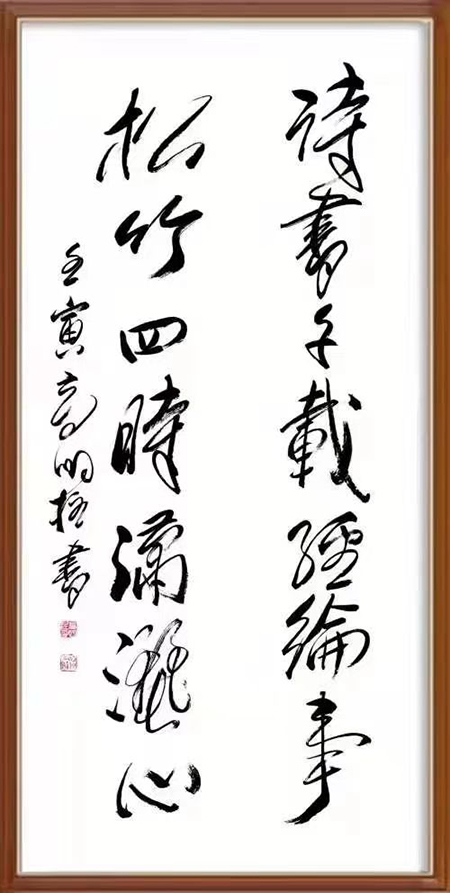 詩書千載經綸事
松竹四時瀟灑心
壬寅高明書